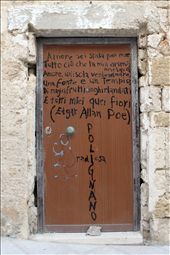 Amore sei stata per me
Tutto ciò che la mia anima
Amore, un isola verde
Una fonte e un Tempio
frutti, inghirlandati
E tutti miei quei Fiori
(Etgar Allan Poe)
POLIGNANO